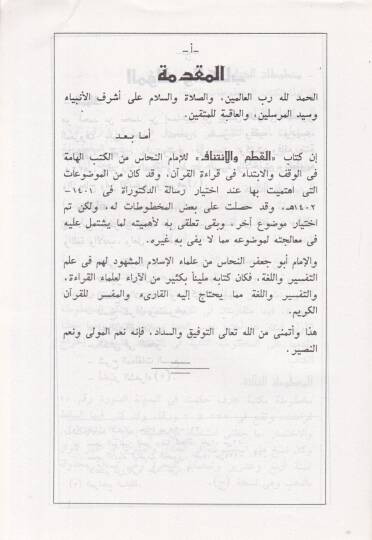 -أ-
المقدمة
الحمد لله رب العالمين، والصلاة والسلام على أشرف الأنبياء
وسيد المرسلين، والعاقبة للمتقين.
أما بعد
إن كتاب «القطع والائتناف» للإمام النحاس من الكتب الهامة
فى الوقف والابتداء فى قراءة القرآن، وقد كان من الموضوعات
التى اهتميت بها عند اختيار رسالة الدكتوراة فى ١٤٠١-
١٤٠٢هـ، وقد حصلت على بعض المخطوطات له، ولكن تم
اختيار موضوع آخر، وبقى تعلقى به لأهميته لما يشتمل عليه
فى معالجته لموضوعه مما لا يفى به غيره.
والإمام أبو جعفر النحاس من علماء الإسلام المشهود لهم فى علم
التفسير واللغة، فكان كتابه مليئاً بكثير من الآراء لعلماء القراءة،
والتفسير واللغة مما يحتاج إليه القارىء والمفسر للقرآن
الكريم.
هذا وأتمنى من الله تعالى التوفيق والسداد، فإنه نعم المولى ونعم
النصير.